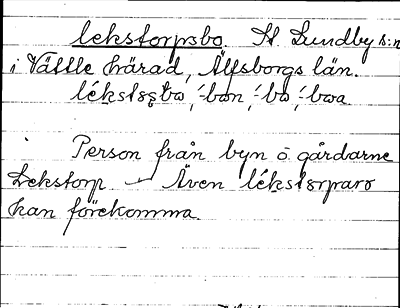 lekstorpsbo. St. Lundby s:n
i Vättle härad, Älfsborgs län.
lékstơsbo, ́-bon, ́-bo, ́-boa.
Person från byn o gårdarne
Lekstorp. – Även lékstơrparo
kan förekomma.